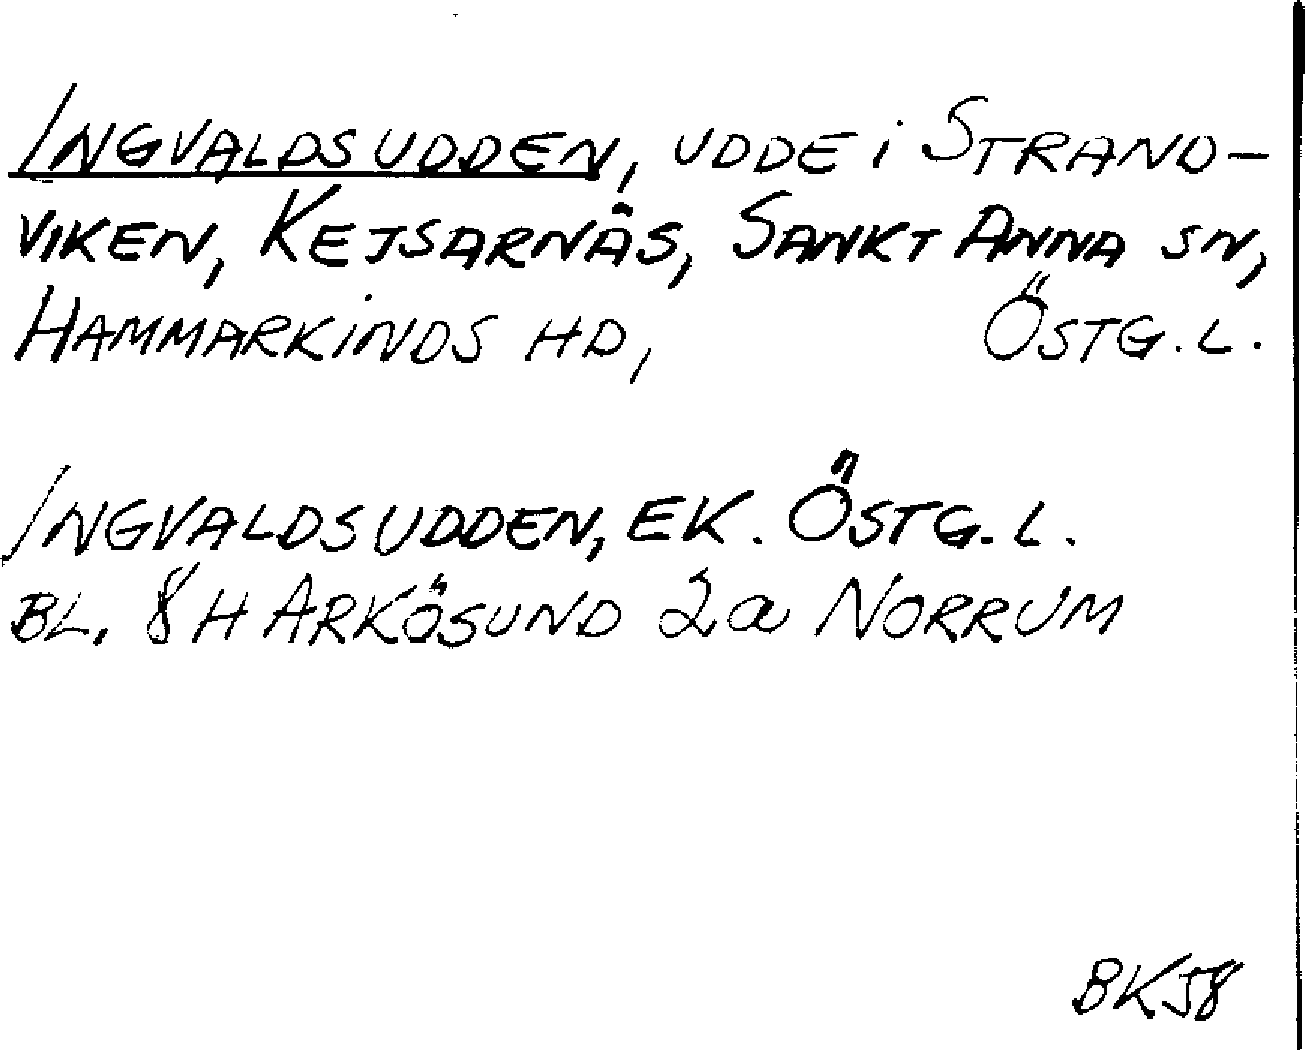 INGVALDSUDDEN, UDDE i STRAND-
VIKEN, KEJSARNÄS, SANKT ANNA SN,
HAMMARKINDS HD, ÖSTG. L.
INGVALDSUDDEN, EK. ÖSTG. L.
BL. 8 H ARKÖSUND 2a NORRUM
BKJ8